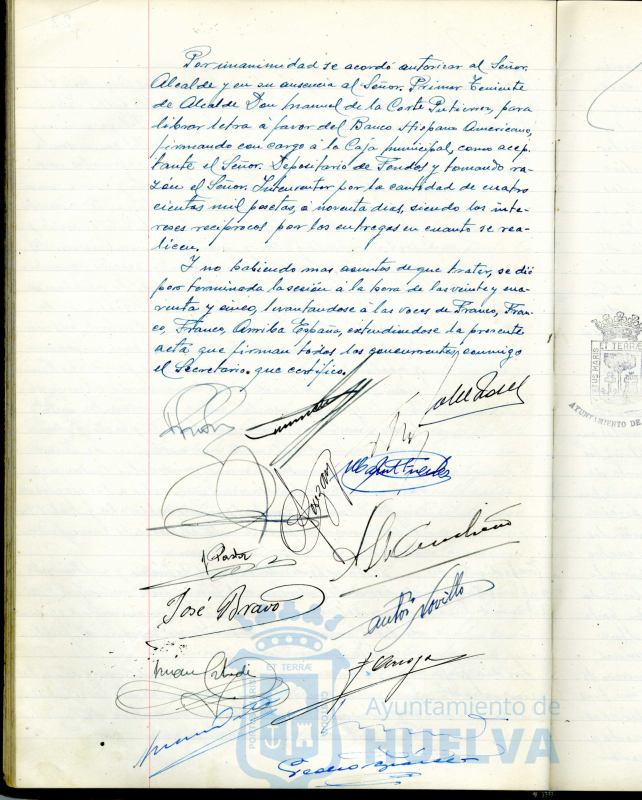 Por unanimidad se acordó autorizar al Señor
Alcalde y en su ausencia al Señor. Primer Teniente
de Alcalde Don Manuel de la Corte Gutierrez, para
librar letra á favor del Banco Hispano Americano,
firmando con cargo á la Caja municipal, como acep-
tante el Señor. Depositario de Fondos y tomando ra-
zón el Señor. Interventor por la cantidad de cuatro
cientas mil pesetas, á noventa dias, siendo los inte-
reses recíprocos por las entregas en cuanto se rea-
licen.
Y no habiendo mas asuntos de que tratar, se dió
por terminada la sesión á la hora de las veinte y cua-
renta y cinco, levantandose á las voces de Franco, Fran-
co, Franco, Arriba España, extendiendose la presente
acta que firman todos los concurrentes conmigo
el Secretario que certifico.
José Bravo
Antº Novillo
ET TERRÆ
AYUNTAMIENTO DE
Ayuntamiento de
HUELVA